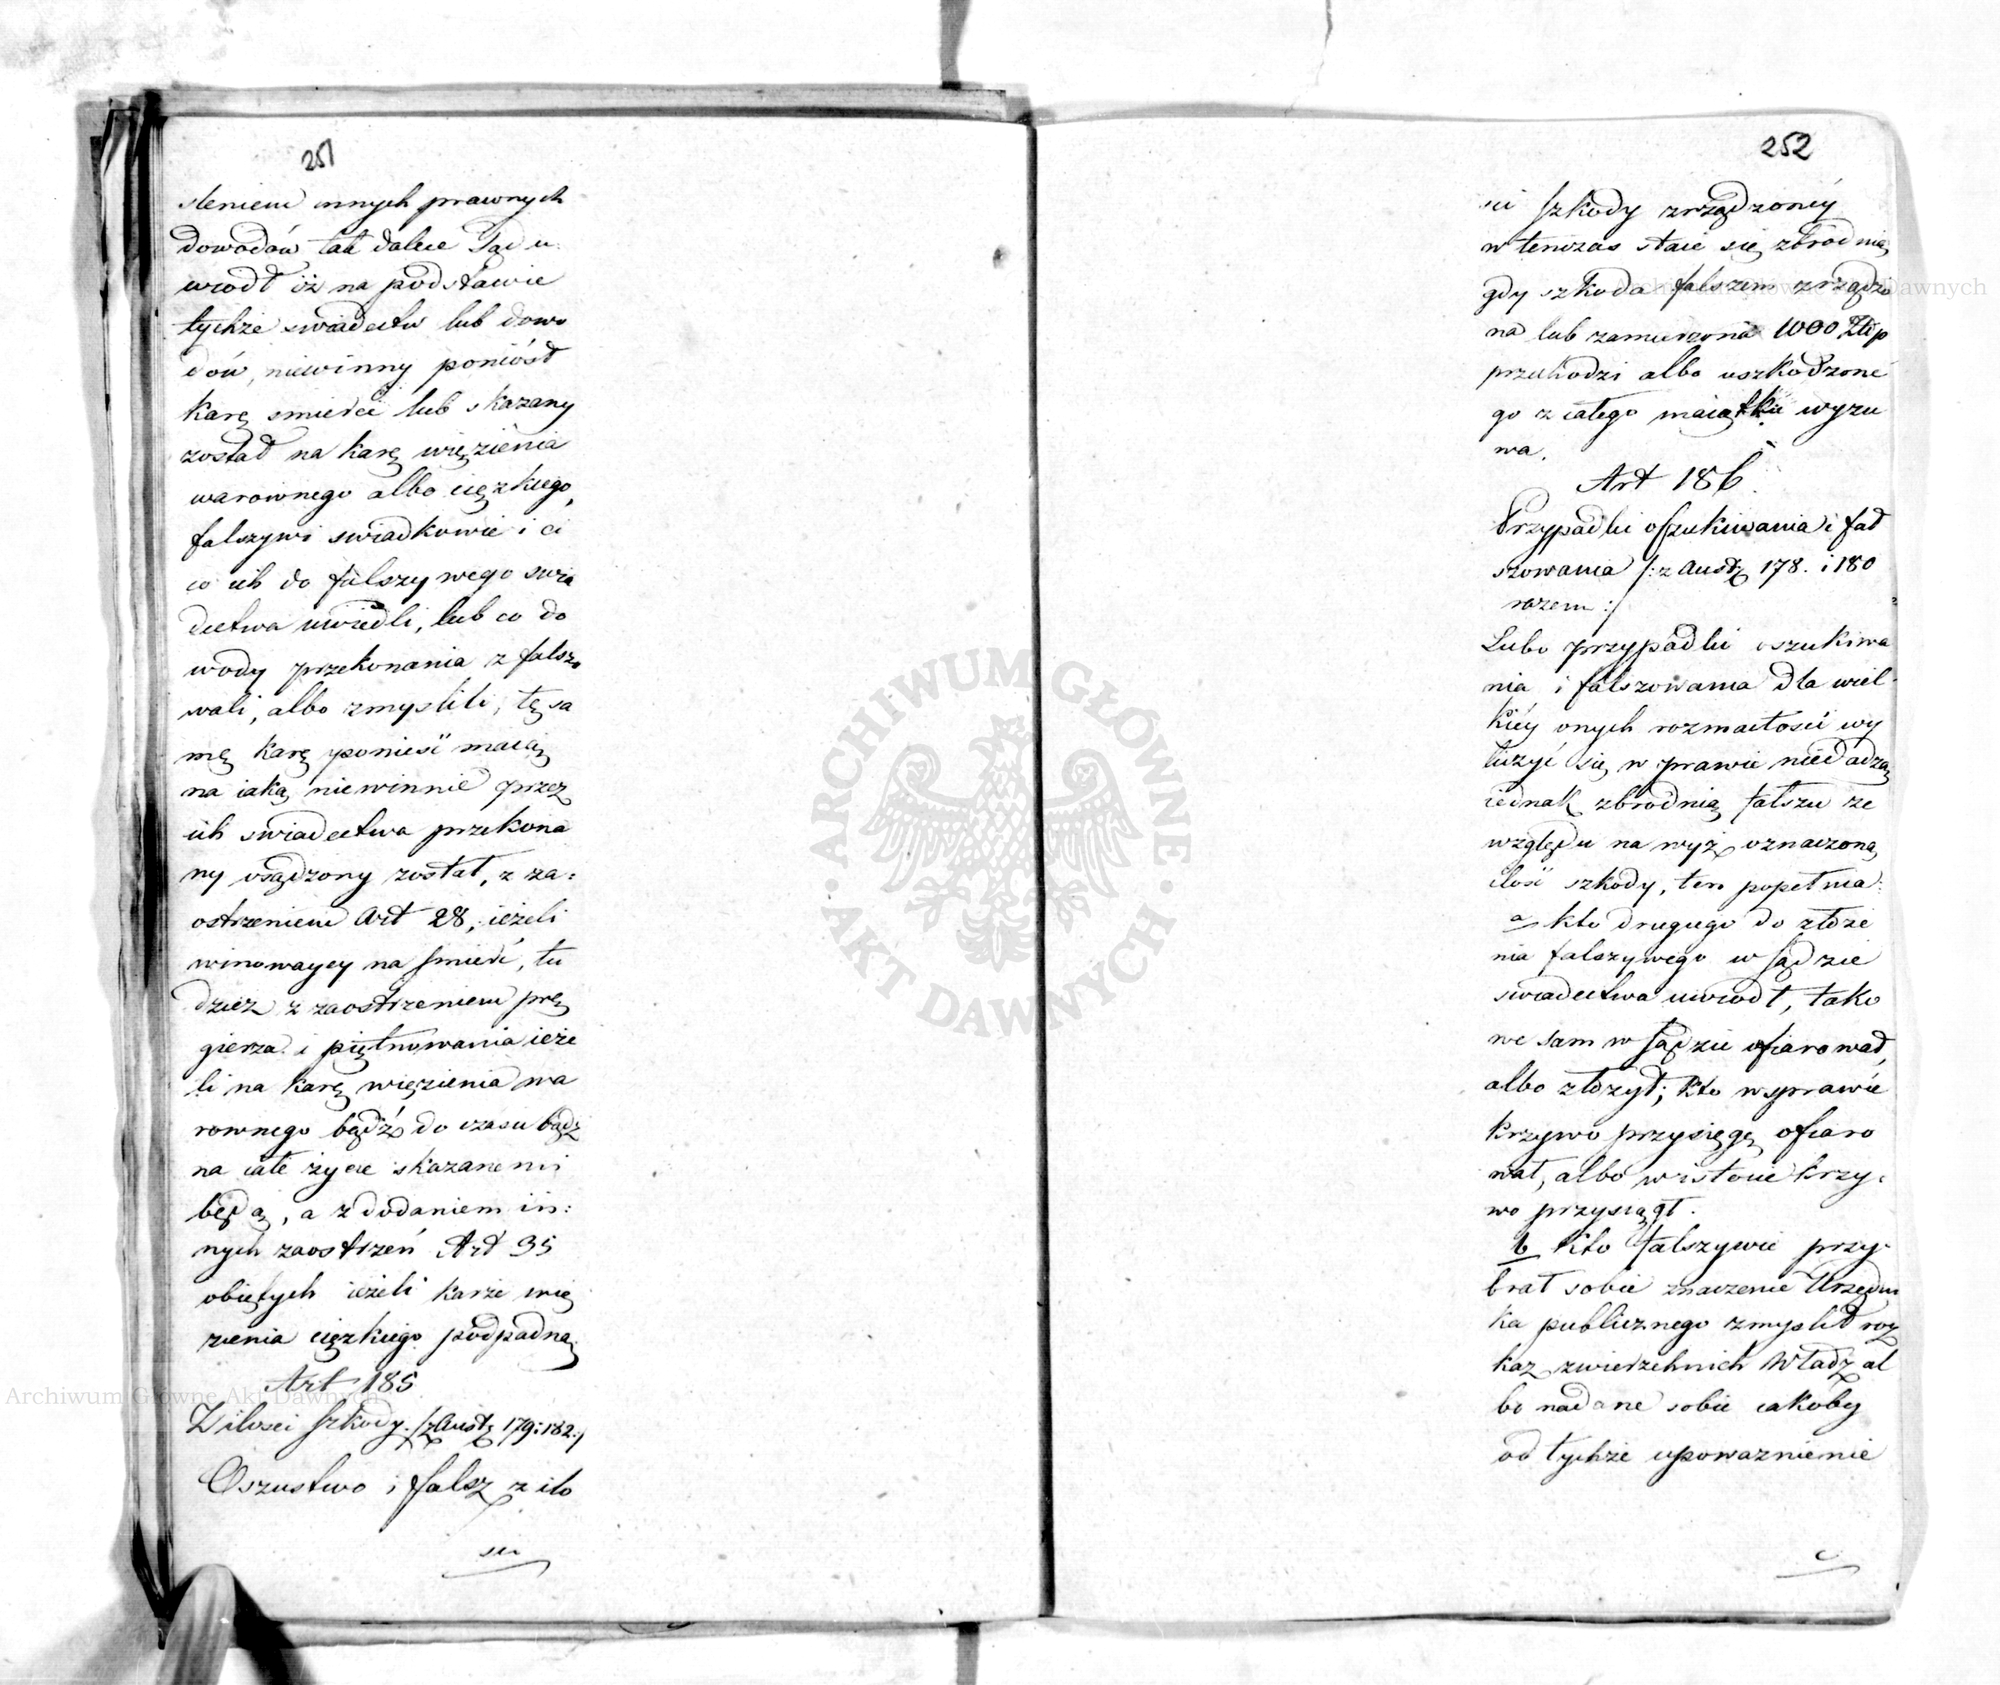 251
sleniem innych prawnych
dowodów tak dalece Sąd u
wiodł iż na podstawie
tychże swiadectw lub dowo
dów, niewinny poniósł
karę smierci lub skazany
został na karę więzienia
warownego albo ciężkiego,
falszywi swiadkowie i ci
co ich do falszywego swia
dectwa uwiedli, lub co do
wody przekonania z falszo
wali, albo zmyslili, tę sa
mę karę ponieść maią
na iaką niewinnie przez
ich swiadectwa przekona
ny osądzony został, z za:
ostrzeniem Art 28, ieżeli
winowaycy na smierć, tu
dzież z zaostrzeniem prę
gierza i piętnowania ieże
li na karę więzienia wa
rownego bądź do czasu bądź
na całe życie skazanemi
będą, a z dodaniem in:
nych zaostrzeń Art 35
obiętych ieżeli karze wię
zienia ciężkiego podpadną
Art 185
Z ilosci szkody. /:z Austr 179 i 182:/
Oszustwo i falsz z ilo
sci
252
sci szkody zrządzonéy
w tenczas staie się zbrodnią
gdy szkoda falszem zrządzo
na lub zamierzona 1000 Złlp
przechodzi albo uszkodzone
go z całego maiątku wyzu
wa.
Art 186
Przypadki oszukiwania i fał
szowania /: z Austr 178. i 180
razem :/
Lubo przypadki oszukiwa
nia i falszowania dla wiel
kiéy onych rozmaitości wy
liczyć się w prawie niedadzą
iednak zbrodnią falszu ze
względu na wyż oznaczoną
ilość szkody, ten popełnia:
a kto drugiego do złoże
nia falszywego w sądzie
swiadectwa uwiodł, tako
we sam w sądzie ofiarował,
albo złożył; kto w sprawie
krzywo przysięgę ofiaro
wał, albo w istocie krzy:
wo przysiągł.
b Kto falszywie przy
brał sobie znaczenie Urzędni
ka publicznego zmyslił roz
kaz zwierzchnich Władz al
bo nadane sobie iakoby
od tychże upoważnienie
c
Archiwum Główne Akt Dawnych
ARCHIWUM GŁÓWNE · AKT DAWNYCH ·
Archiwum Główne Akt Dawnych